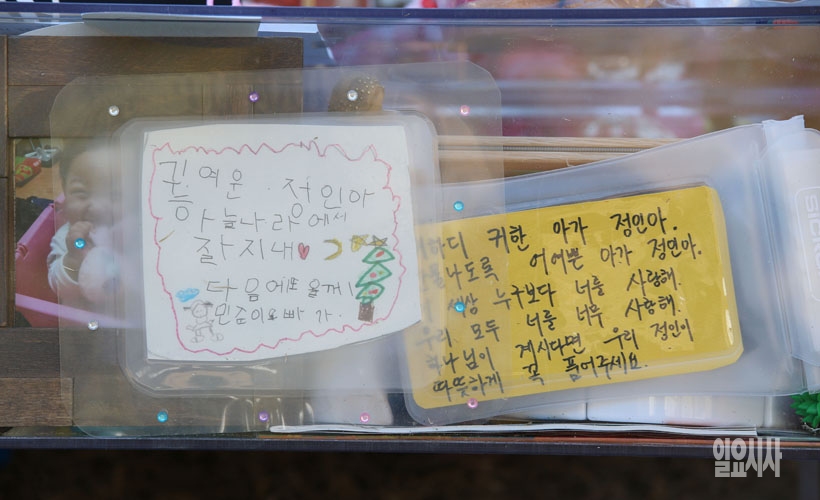 귀여운 정인아
하늘나라에서
잘지내♥
다음에또 올께!
민준이오빠 가.
하디 귀한 아가 정인아.
눈물나도록 어여쁜 아가 정인아.
세상 누구보다 너를 사랑해.
우리 모두 너를 너무 사랑해.
하나님이 계시다면 우리 정인이
따뜻하게 꼭 품어주세요.
일요시사